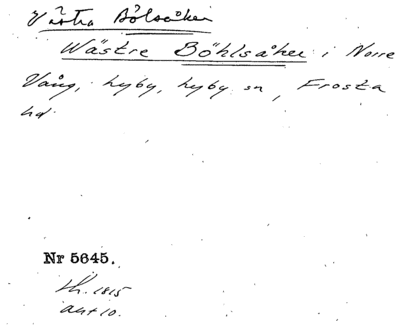 Västra Bölsåker
Wästre Böhlsåker i Norre
Vång, Hyby, Hyby sn, Frosta
hd.
Nr 5645.
1815
akt 10.